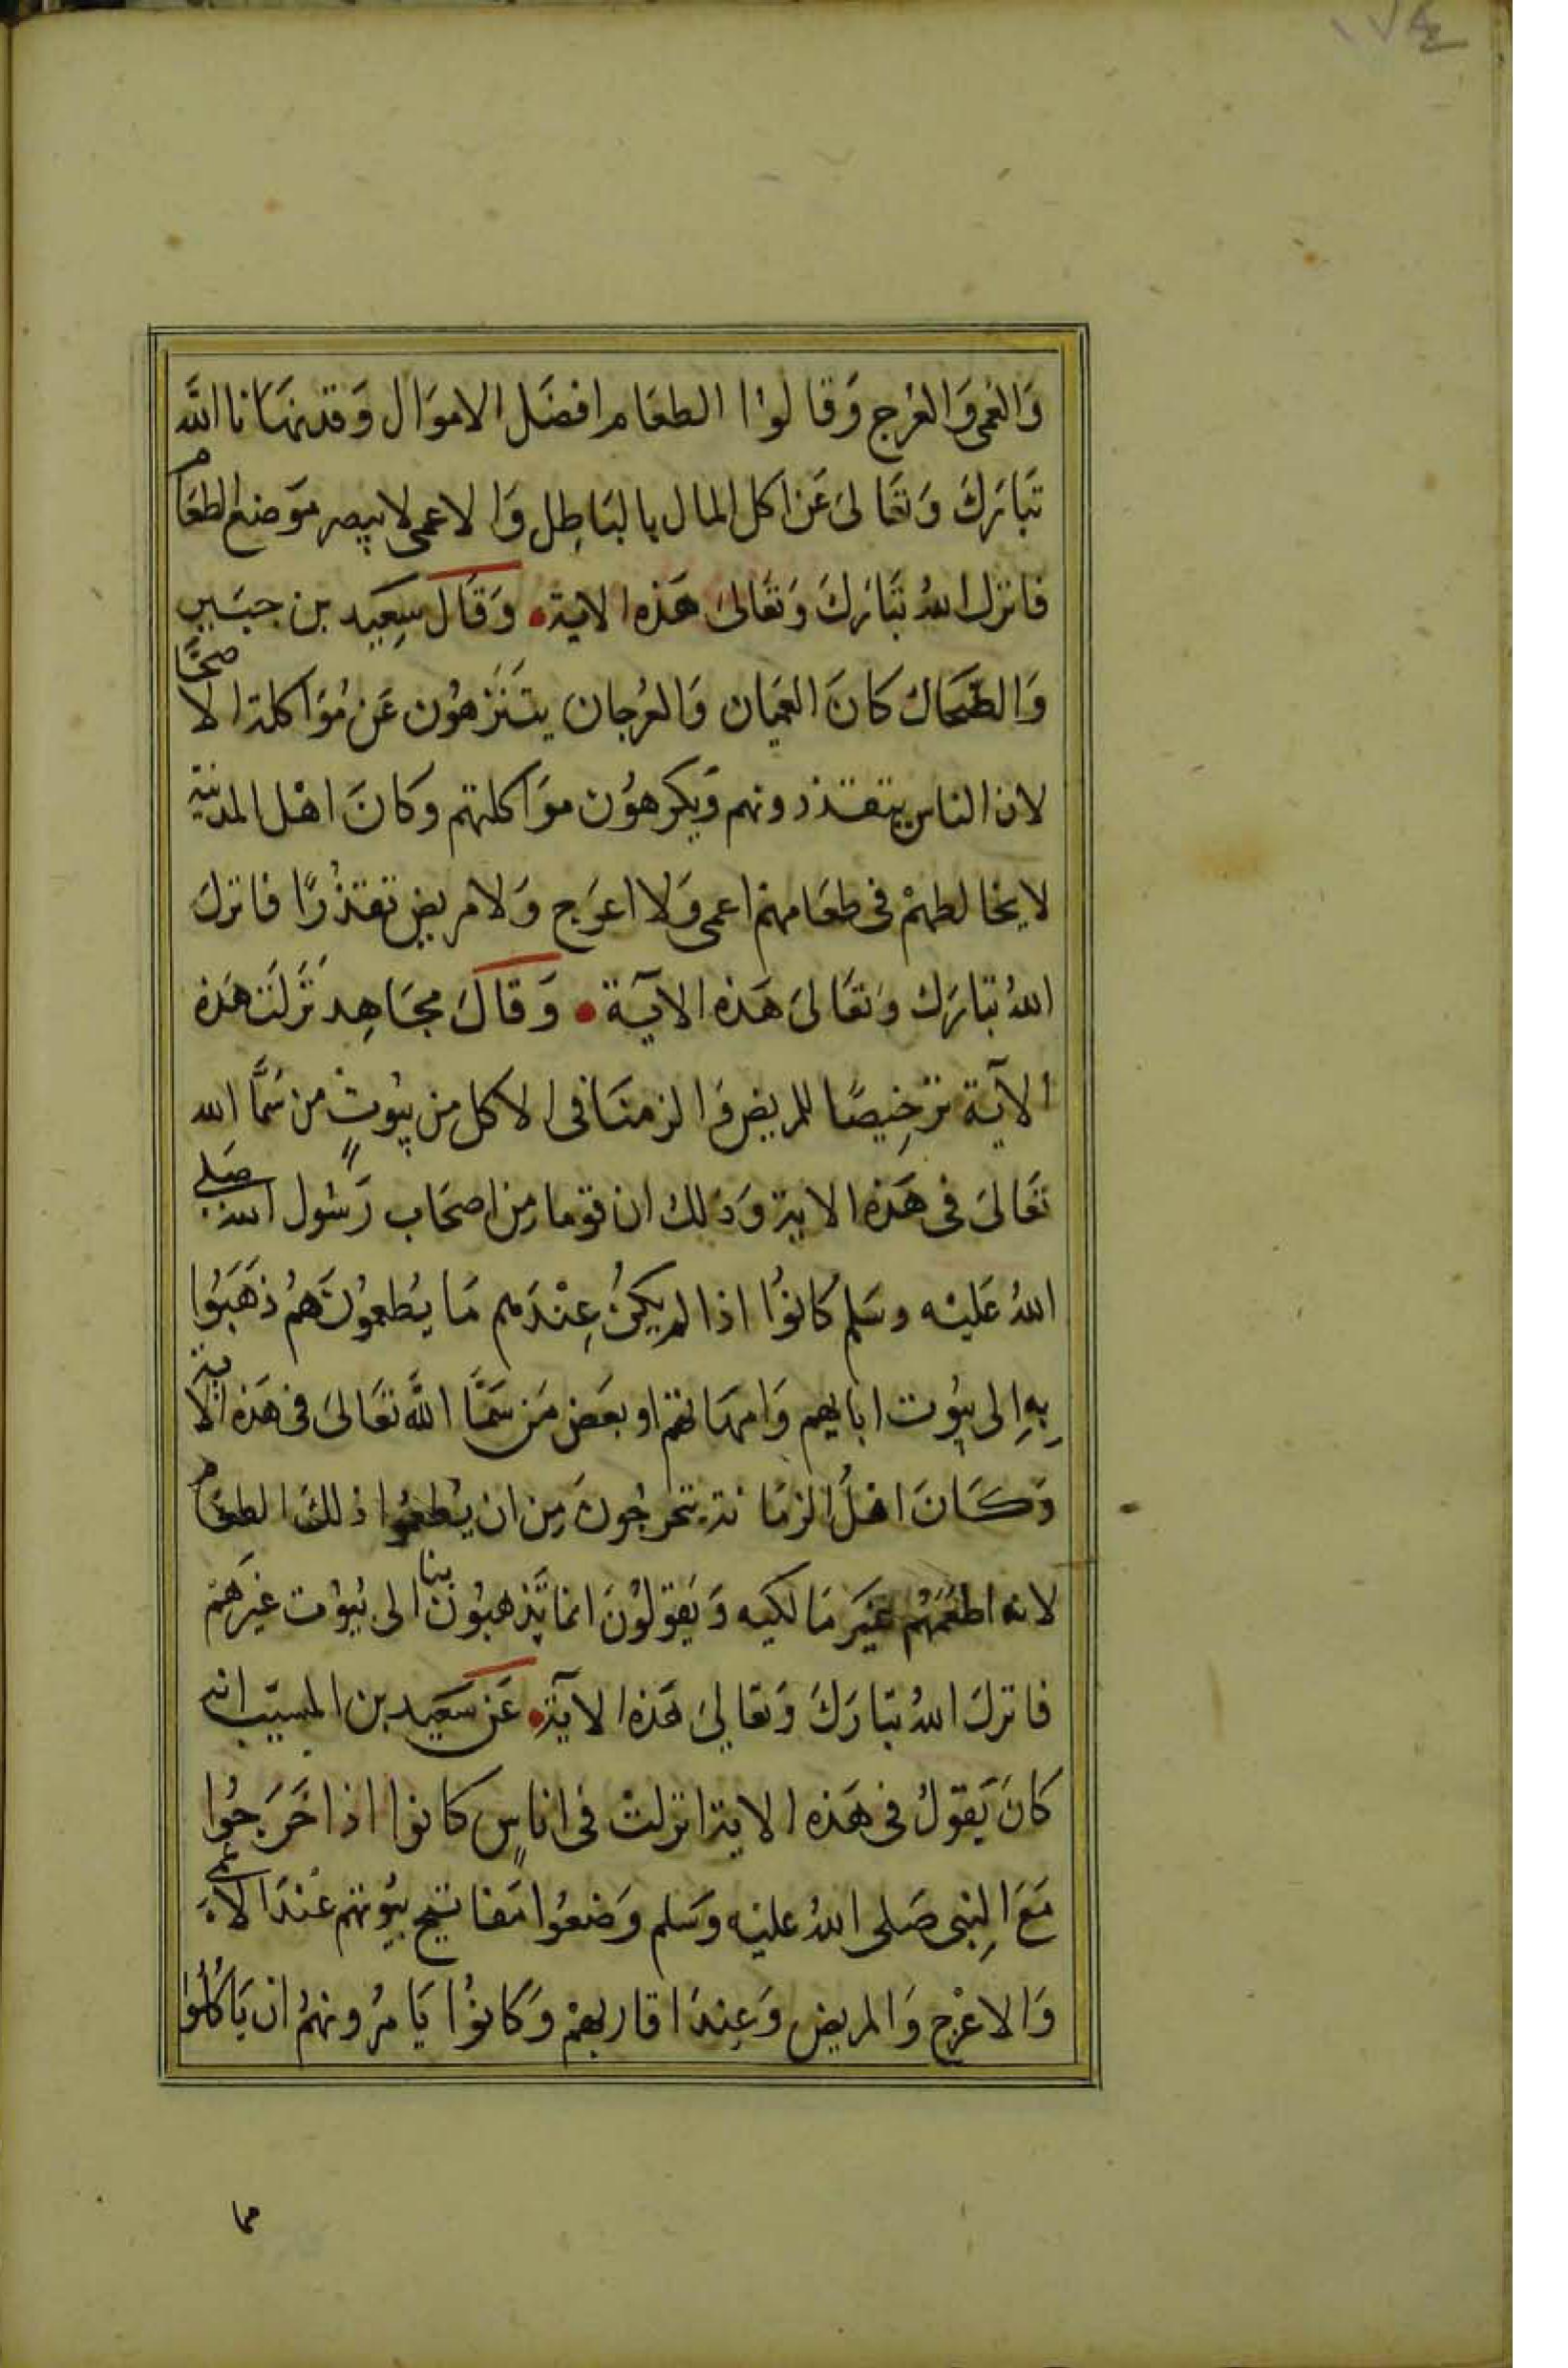 ١٧٤
وَالعُمى وَالعُرْج وَقالوْا الطعَام افضَل الاموَال وَقد نهَانا اللَّه
تبَارَكَ وَتعَالىَ عَن اكل المال بالبَاطِل وَالاعمى لا يبصر موَضع الطعَام
فانزل اللهُ تبَارَكَ وَتعَالىَ هَذه الاية • وَقَالَ سِعَيد بن جبَيِر
وَالضحَاك كَانَ العميَان وَالعُرجان يتنَزهوُن عَن مُؤاكلة الاصحَّا
لان الناس يتقذرونهم وَيكرهوُن موَاكلتهم وكَانَ اهْل المدينة
لا يخالطهمْ فى طعَامهمْ اعمى وَلا اعرَج وَلا مريض تقذرًا فانزلَ
اللهُ تبَارَك وَتعَالىَ هَذه الآية • وَقالَ مجَاهِد نَزلَت هَذه
الآية ترْخِيصًا للمريض وَالزمنَا فى الاكل مِن بيُوتٍ من سَمَّا الله
تعَالىَ فى هَذه الاية وَذلك ان قوما مِن اصحَاب رَسُول الله صَلى
اللهُ عَليْه وسَلم كَانوُا اذا لم يكنُ عِنْدَهم مَا يُطعموُنَهمُ ذهَبَوُا
بِهِ اِلى بيُوت ابايهم وَامهَاتهم او بعَض مَن سَمَّا اللَّه تعَالىَ فى هَذه الاية
وَكَانَ اهْلُ الزمَانة يتحرجُونَ مِن ان يُطعمُوا ذلكَ الطعَام
لانه اطعَمَهُم غَيرَ مَالكيه وَيَقولوُنَ انما يَذهبُون بنا الى بُيوُت غيرَهمْ
فانزلَ اللهُ تبَارَكَ وَتعَالىَ هَذه الاَية • عَن سَعَيد بن المسيّب انه
كَانَ يَقولُ فى هَذه الاية انزلتْ فى اناسٍ كانوا اذا خَرَجُوا
مَعَ النِبى صَلى اللهُ عليْه وَسَلم وَضعوُا مَفاتيح بيُوتهم عنْدَ الاعمى
وَالاعْرج وَالمريض وَعِندَ اقاربهمْ وَكَانوُا يَامُرونهمُ ان يَاكُلوُا
مما